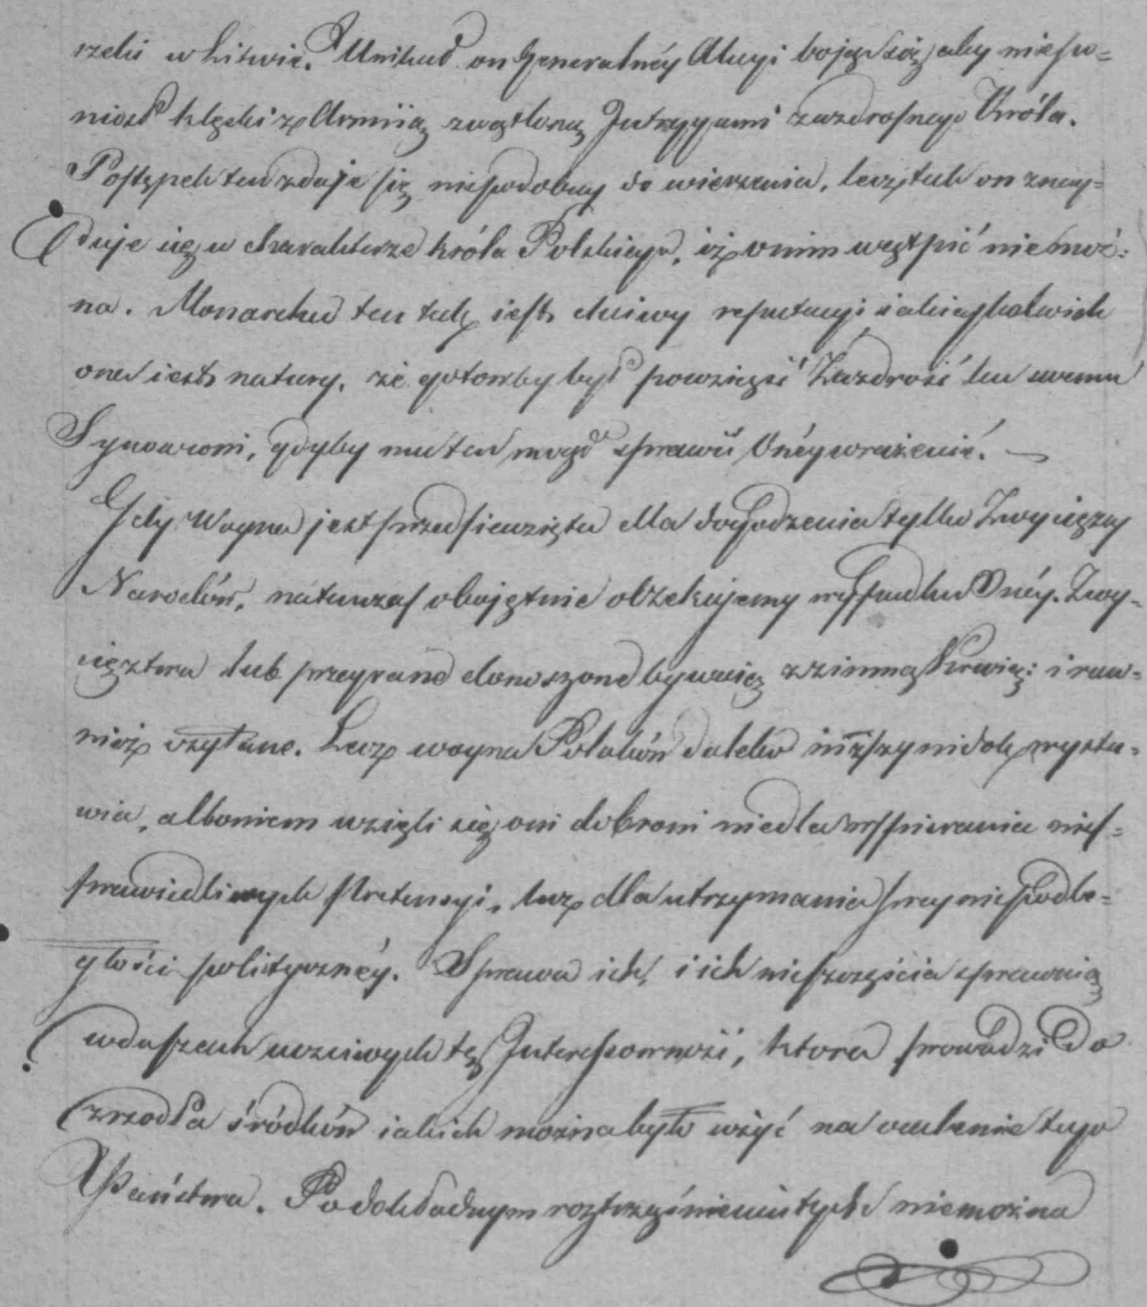 rzeki w Litwie. Unikał on Generalnéy Akcyi bojąc się, aby niepo=
niosł klęski z Armiią zwątloną Jntrygami zazdrosnego Króla.
Postępek ten zdaje się niepodobny do wierzenia, lecz tak on znay=
duje się w charakterze króla Polskiego, iż o nim wątpić niemoż=
na. Monarcha ten tak jest chciwy reputacyi iakieykolwiek
ona iest natury, że gotowby był powziąść Zazdrość ku swemu
Synowcowi, gdyby mu ten mógł sprawić Onéy wrażenie. —
Gdy Woyna jest przedsiewzięta dla dogodzenia tylko Zwycięzcy
Narodów, natenczas obojętnie oczekujemy wypadku Onéy. Zwy=
cięztwa lub przegrane donoszone bywaią z zimną Krwią: i row=
nież czytane. Lecz woyna Polaków daleko inszy widok wysta=
wia, albowiem wzięli się oni do broni nie dla wspierania nies=
prawiedliwych Pretensyi, lecz dla utrzymania swey niepodle=
głości polityczney. Sprawa ich, i ich nieszczęścia sprawuią
w duszach uczciwych tę Jnteressowność, ktora prowadzi Do
zrzodła śródków iakich można było użyć na ocalenie tego
Państwa. Po dokładnym roztrząśnieniu tych niemożna